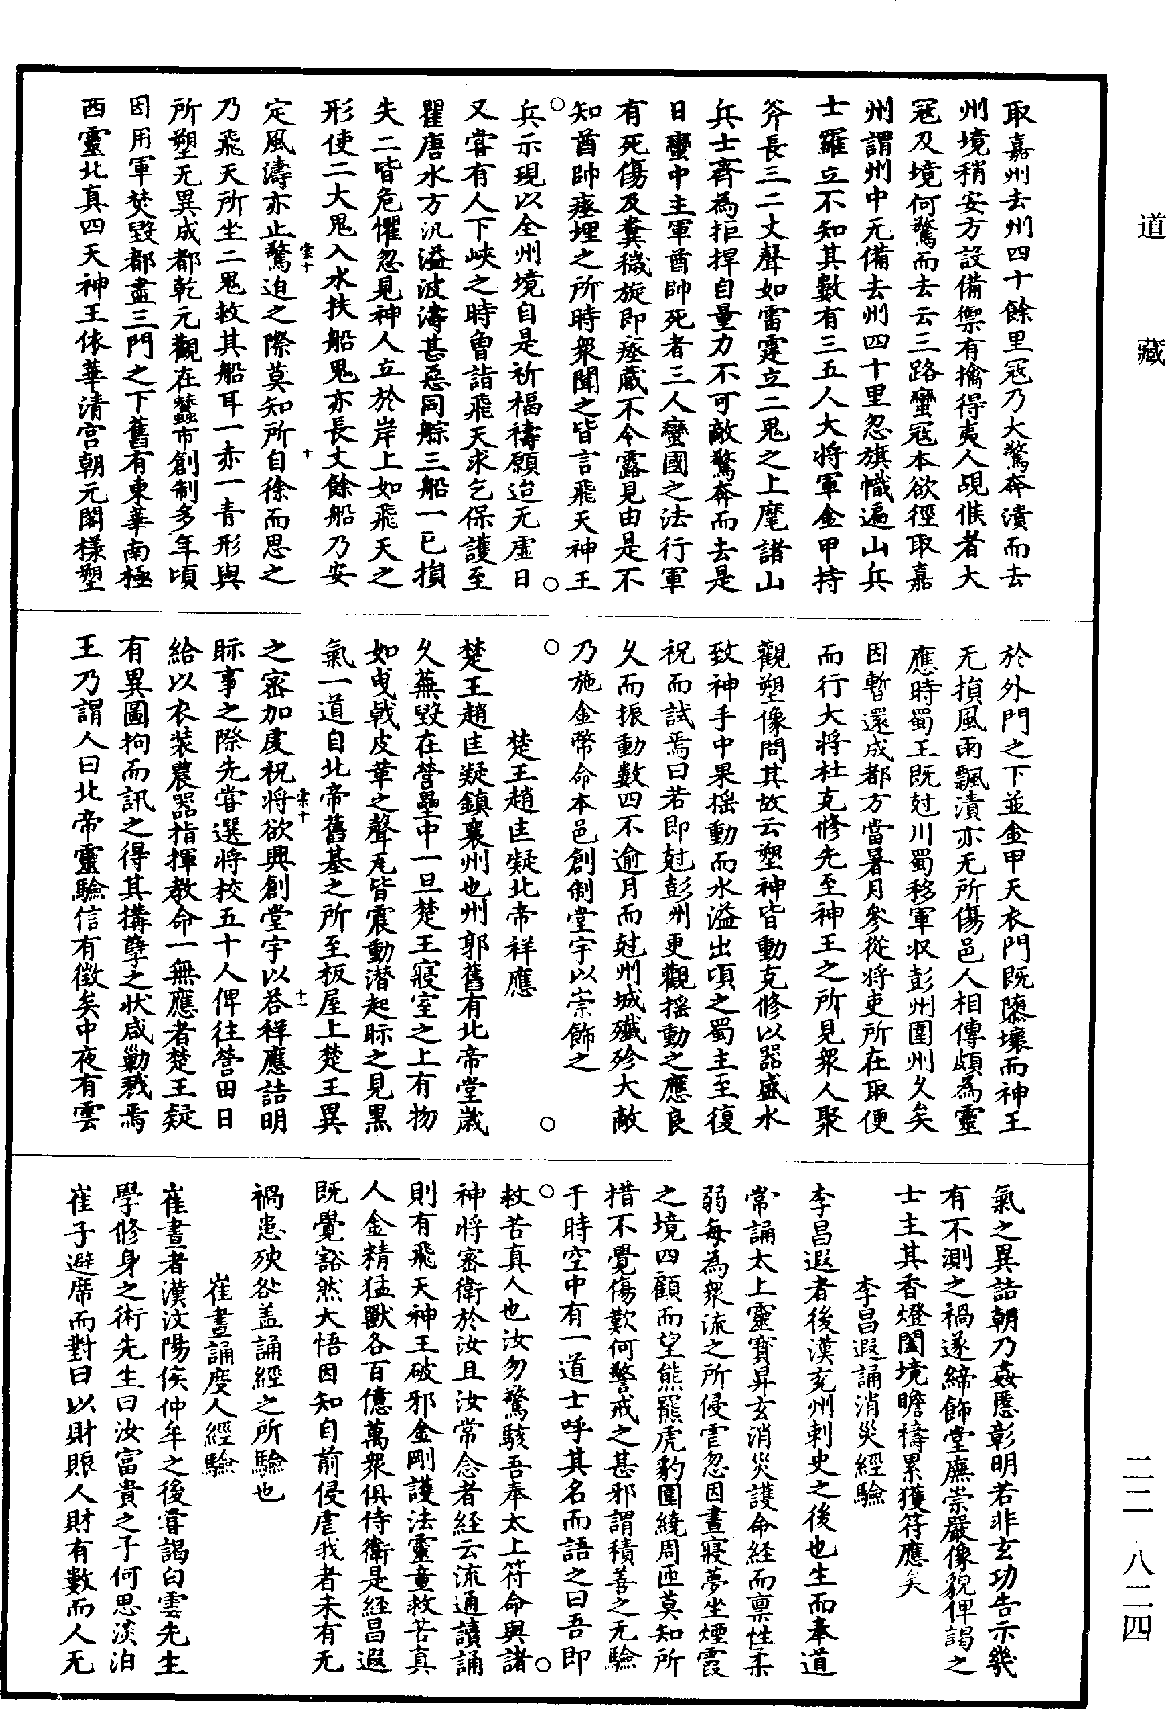 道藏
取嘉州去州四十餘里寇乃大驚奔潰而去
州境稍安方設備禦有擒得夷人覘候者大
寇及境何驚而去云三路蠻寇本欲徑取嘉
州謂州中无備去州四十里忽旗幟遍山兵
士羅立不知其數有三五人大將軍金甲持
斧長三二丈聲如雷霆立二鬼之上麾諸山
兵士齊為拒捍自量力不可敵驚奔而去是
日蠻中主軍酋帥死者三人蠻國之法行軍
有死傷及糞穢旋即瘞藏不令露見由是不
知酋帥瘞埋之所時衆聞之皆言飛天神王
兵示現以全州境自是祈福禱願迨无虛日
又嘗有人下峽之時曾詣飛天求乞保護至
瞿唐水方汎溢波濤甚惡同艅三船一已損
失二皆危懼忽見神人立於岸上如飛天之
形使二大鬼入水扶船鬼亦長丈餘船乃安
定風濤亦止驚迫之際莫知所自徐而思之
乃飛天所坐二鬼救其船耳一赤一青形與
所塑无異成都乾元觀在蠶市創制多年頃
因用軍焚毀都盡三門之下舊有東華南極
西靈北真四天神王依華清宫朝元閣樣塑
於外門之下並金甲天衣門既隳壞而神王
无損風雨飄漬亦无所傷邑人相傳頗為靈
應時蜀王既尅川蜀移軍収彭州圍州久矣
因暫還成都方當暑月參從將吏所在取便
而行大將杜克修先至神王之所見衆人聚
觀塑像問其故云塑神皆動克修以器盛水
致神手中果揺動而水溢出頃之蜀主至復
祝而試焉曰若即尅彭州更觀揺動之應良
久而振動數四不逾月而尅州城殲殄大敵
乃施金幣命本邑創制堂宇以崇飾之
楚王趙匡凝北帝祥應
楚王趙匡凝鎮襄州也州郭舊有北帝堂歲
久蕪毀在營壘中一旦楚王寢室之上有物
如曳戟皮革之聲瓦皆震動潜起眎之見黒
氣一道自北帝舊基之所至板屋上楚王異
之密加虔祝將欲興創堂宇以荅祥應詰明
眎事之際先嘗選將校五十人俾往營田日
給以衣装農器指揮教命一無應者楚王疑
有異圖拘而訊之得其搆孽之状咸勦戮焉
王乃謂人曰北帝靈驗信有徵矣中夜有雲
氣之異詰朝乃姦慝彰明若非玄功告示幾
有不測之禍遂締飾堂廡崇嚴像貌俾謁之
士主其香燈闔境瞻禱累獲符應矣
李昌遐誦消災經驗
李昌遐者後漢兖州刺史之後也生而奉道
常誦太上靈寳昇玄消災護命經而禀性柔
弱每為衆流之所侵雪忽因晝寢夢坐煙霞
之境四顧而望熊羆虎豹圍繞周匝莫知所
措不覺傷歎何警戒之甚邪謂積善之无驗
于時空中有一道士呼其名而語之曰吾即
救苦真人也汝勿驚駭吾奉太上符命與諸
神將密衛於汝且汝常念者經云流通讀誦
則有飛天神王破邪金剛護法靈童救苦真
人金精猛獸各百億萬衆俱侍衛是經昌遐
既覺豁然大悟因知自前侵虐我者未有无
禍患殃咎盖誦經之所驗也
崔晝誦度人經驗
崔晝者漢汶陽侯仲牟之後嘗謁白雲先生
學修身之術先生曰汝富貴之子何思淡泊
崔子避席而對曰以財賑人財有數而人无
二二·八二四